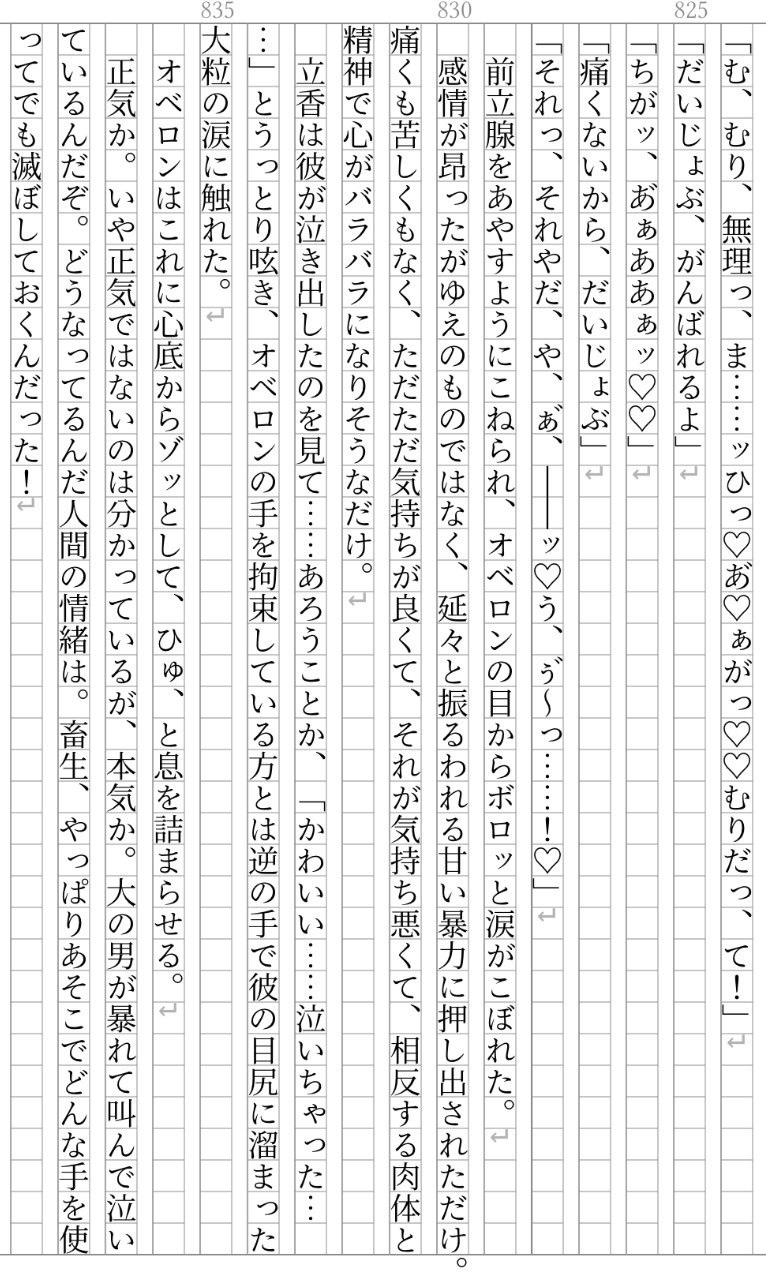 「む、むり、無理っ、ま……ッひっ♡あ゛♡ぁがっ♡♡むりだっ、て！」
825
「だいじょぶ、がんばれるよ」
「ちがッ、あ゛ぁああぁッ♡♡」
「痛くないから、だいじょぶ」
「それっ、それやだ、や、ぁ゛、――ッ♡う、ぅ゛～っ……！♡」
　前立腺をあやすようにこねられ、オベロンの目からボロッと涙がこぼれた。
830
　感情が昂ったがゆえのものではなく、延々と振るわれる甘い暴力に押し出されただけ。
痛くも苦しくもなく、ただただ気持ちが良くて、それが気持ち悪くて、相反する肉体と
精神で心がバラバラになりそうなだけ。
　立香は彼が泣き出したのを見て……あろうことか、「かわいい……泣いちゃった…
…」とうっとり呟き、オベロンの手を拘束している方とは逆の手で彼の目尻に溜まった
835
大粒の涙に触れた。
　オベロンはこれに心底からゾッとして、ひゅ、と息を詰まらせる。
　正気か。いや正気ではないのは分かっているが、本気か。大の男が暴れて叫んで泣い
ているんだぞ。どうなってるんだ人間の情緒は。畜生、やっぱりあそこでどんな手を使
ってでも滅ぼしておくんだった！